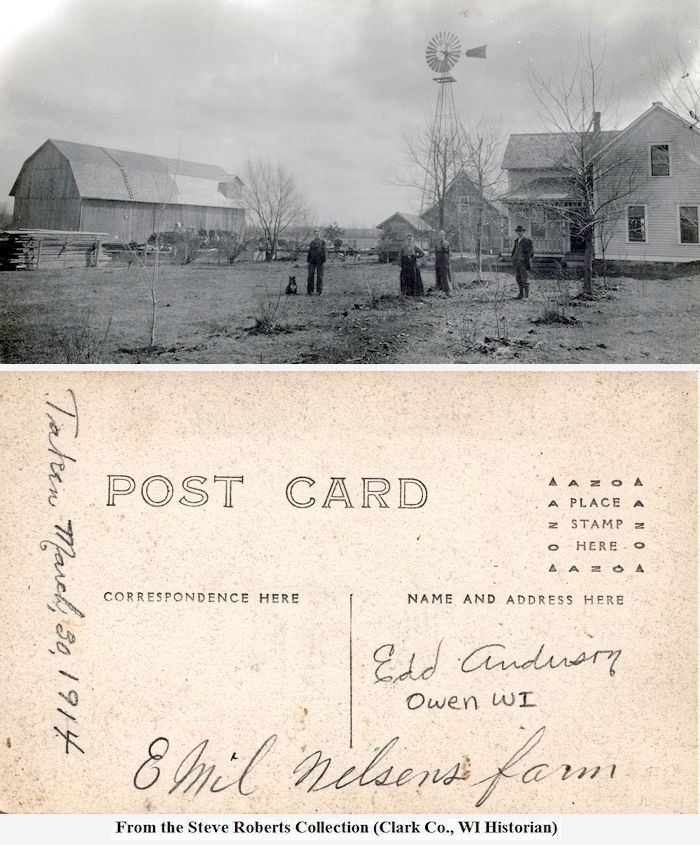 Taken March, 30, 1914
POST CARD
▲ A Z O ▲
A PLACE A
Z STAMP Z
O HERE O
▲ A Z O ▲
CORRESPONDENCE HERE
NAME AND ADDRESS HERE
Edd Anderson
Owen WI
EMil Nelsens farm
From the Steve Roberts Collection (Clark Co., WI Historian)